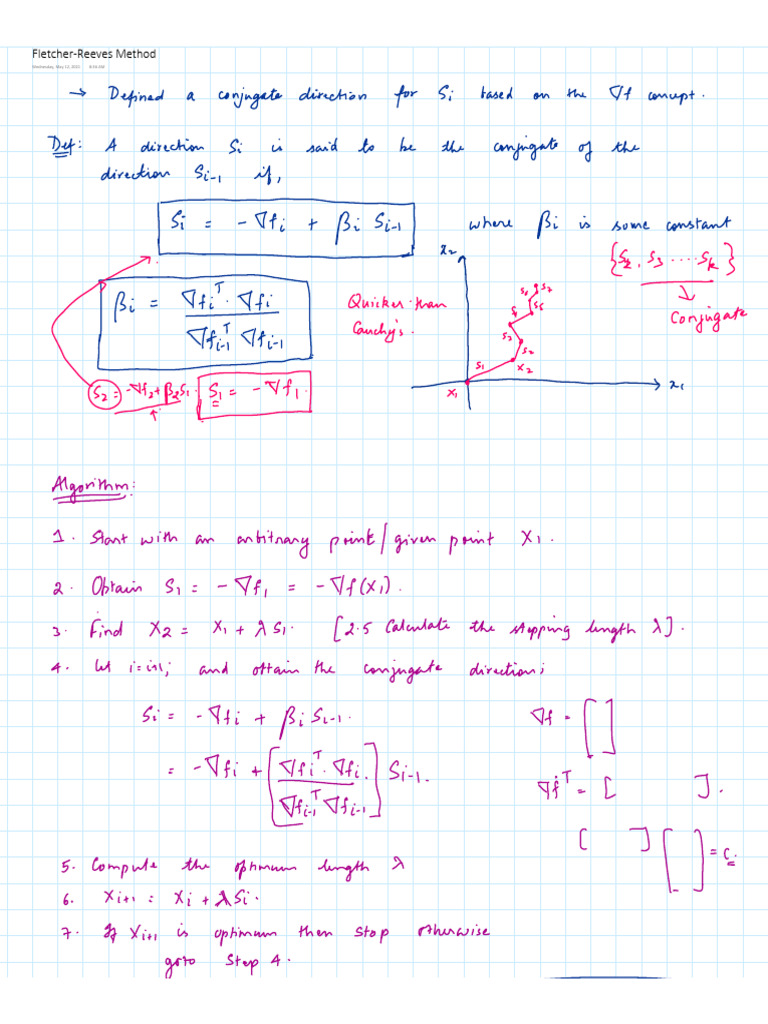 Fletcher-Reeves Method
→ Defined a conjugate direction for Si based on the ∇f concept.
Def: A direction Si is said to be the conjugate of the
direction Si-1 if,
Si = -∇fi + βi Si-1 where βi is some constant
x2
{S2, S3 ....Sk}
↓
Conjugate
βi = ∇fi^T · ∇fi / ∇fi-1^T ∇fi-1
Quicker than
Cauchy's.
S2 = -∇f2 + β2 S1. S1 = -∇f1.
S1 S2
X1 X2
x1
Algorithm:
1. Start with an arbitrary point/given point X1.
2. Obtain S1 = -∇f1 = -∇f(X1).
3. Find X2 = X1 + λ S1. [2.5 Calculate the stepping length λ].
4. let i=i+1; and obtain the conjugate direction;
Si = -∇fi + βi Si-1.
∇f = [ ]
= -∇fi + [∇fi^T · ∇fi. / ∇fi-1^T ∇fi-1] Si-1.
∇f^T = [ ].
[ ] [ ] = c.
5. Compute the optimum length λ
6. Xi+1 = Xi + λ Si.
7. If Xi+1 is optimum then stop otherwise
goto Step 4.